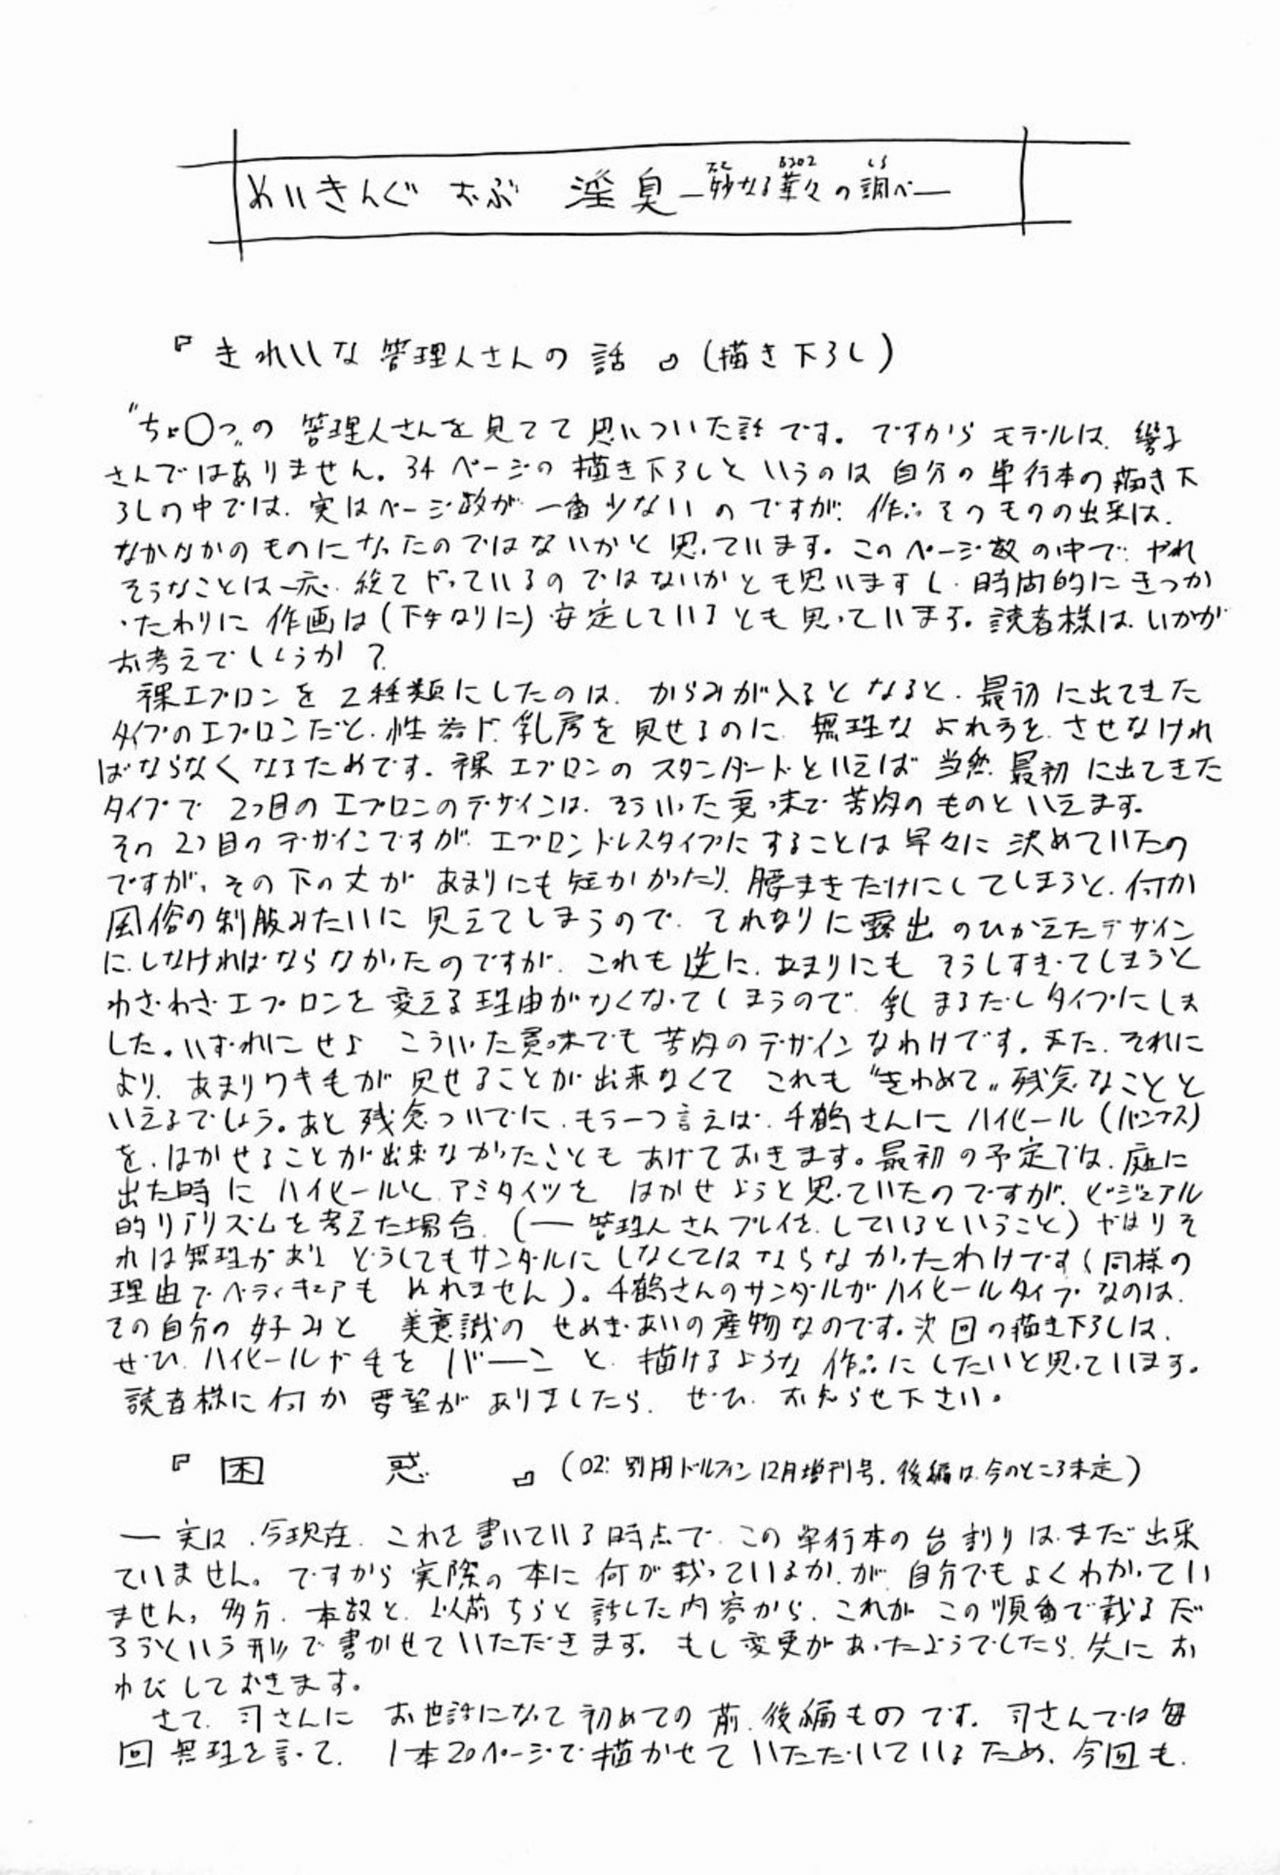 めいきんぐ おぶ 淫臭 ―妙なる華々の調べ―
『きれいな管理人さんの話』(描き下ろし)
"ちょ〇っ"の管理人さんを見てて思いついた話です。ですからモデルは、響子
さんではありません。34ページの描き下ろしというのは自分の単行本の描き下
ろしの中では、実はページ数が一番少ないのですが、作品そのものの出来は、
なかなかのものになったのではないかと思っています。このページ数の中で、やれ
そうなことは一応、総てやっているのではないかとも思いますし、時間的にきつか
ったわりに作画は(下手なりに)安定しているとも思っています。読者様は、いかが
お考えでしょうか?
裸エプロンを2種類にしたのは、からみが入るとなると、最初に出てきた
タイプのエプロンだと、性器や、乳房を見せるのに、無理なよれ方を、させなけれ
ばならなくなるためです。裸エプロンのスタンダードといえば当然、最初に出てきた
タイプで2つ目のエプロンのデザインは、そういった意味で苦肉のものといえます。
その2つ目のデザインですが、エプロンドレスタイプにすることは早々に決めていたの
ですが、その下の丈があまりにも短かかったり、腰まきだけにしてしまうと、何か
風俗の制服みたいに見えてしまうので、それなりに露出のひかえたデザイン
に、しなければならなかったのですが、これも逆に、あまりにもそうしすぎてしまうと
わざわざエプロンを変える理由がなくなってしまうので、乳まるだしタイプにしま
した。いずれにせよ こういった意味でも苦肉のデザインなわけです。また、それに
より、あまりワキ毛が見せることが出来なくて これも"きわめて"残念なことと
いえるでしょう。あと残念ついでに、もう一つ言えば、千鶴さんにハイヒール(パンプス)
を、はかせることが出来なかったこともあげておきます。最初の予定では、庭に
出た時にハイヒールと、アミタイツをはかせようと思っていたのですが、ビジュアル
的リアリズムを考えた場合、(―管理人さんプレイを、しているということ)やはりそ
れは無理があり どうしてもサンダルにしなくてはならなかったわけです(同様の
理由でペディキュアもぬれません)。千鶴さんのサンダルがハイヒールタイプなのは、
その自分の好みと 美意識のせめぎあいの産物なのです。次回の描き下ろしは、
ぜひ、ハイヒールや毛をバーンと、描けるような作品にしたいと思っています。
読者様に何か要望がありましたら、ぜひ、お知らせ下さい。
『困惑』(02'別冊ドルフィン12月増刊号、後編は今のところ未定)
―実は、今現在、これを書いている時点で、この単行本の台割りは、まだ出来
ていません。ですから実際の本に何が載っているか、が、自分でもよくわかってい
ません。多分、本数と、以前ちらと話した内容から、これがこの順番で載るだ
ろうという形で書かせていただきます。もし変更があったようでしたら、先にお
わびしておきます。
さて、司さんに お世話になって初めての前、後編ものです。司さんでは毎
回無理を言って、1本20ページで描かせていただいているため、今回も、